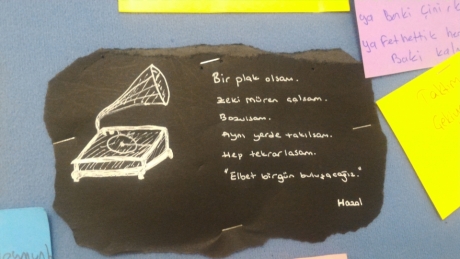 Bir plak olsam.
Zeki Müren çalsam.
Bozulsam.
Aynı yerde takılsam.
Hep tekrarlasam.
"Elbet birgün buluşacağız."
Hazal
ya Baki Çisi,
ya fethettik
Baki